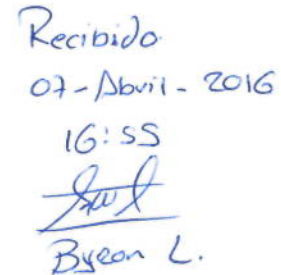 Recibido
07-Abril-2016
16:55
Byron L.